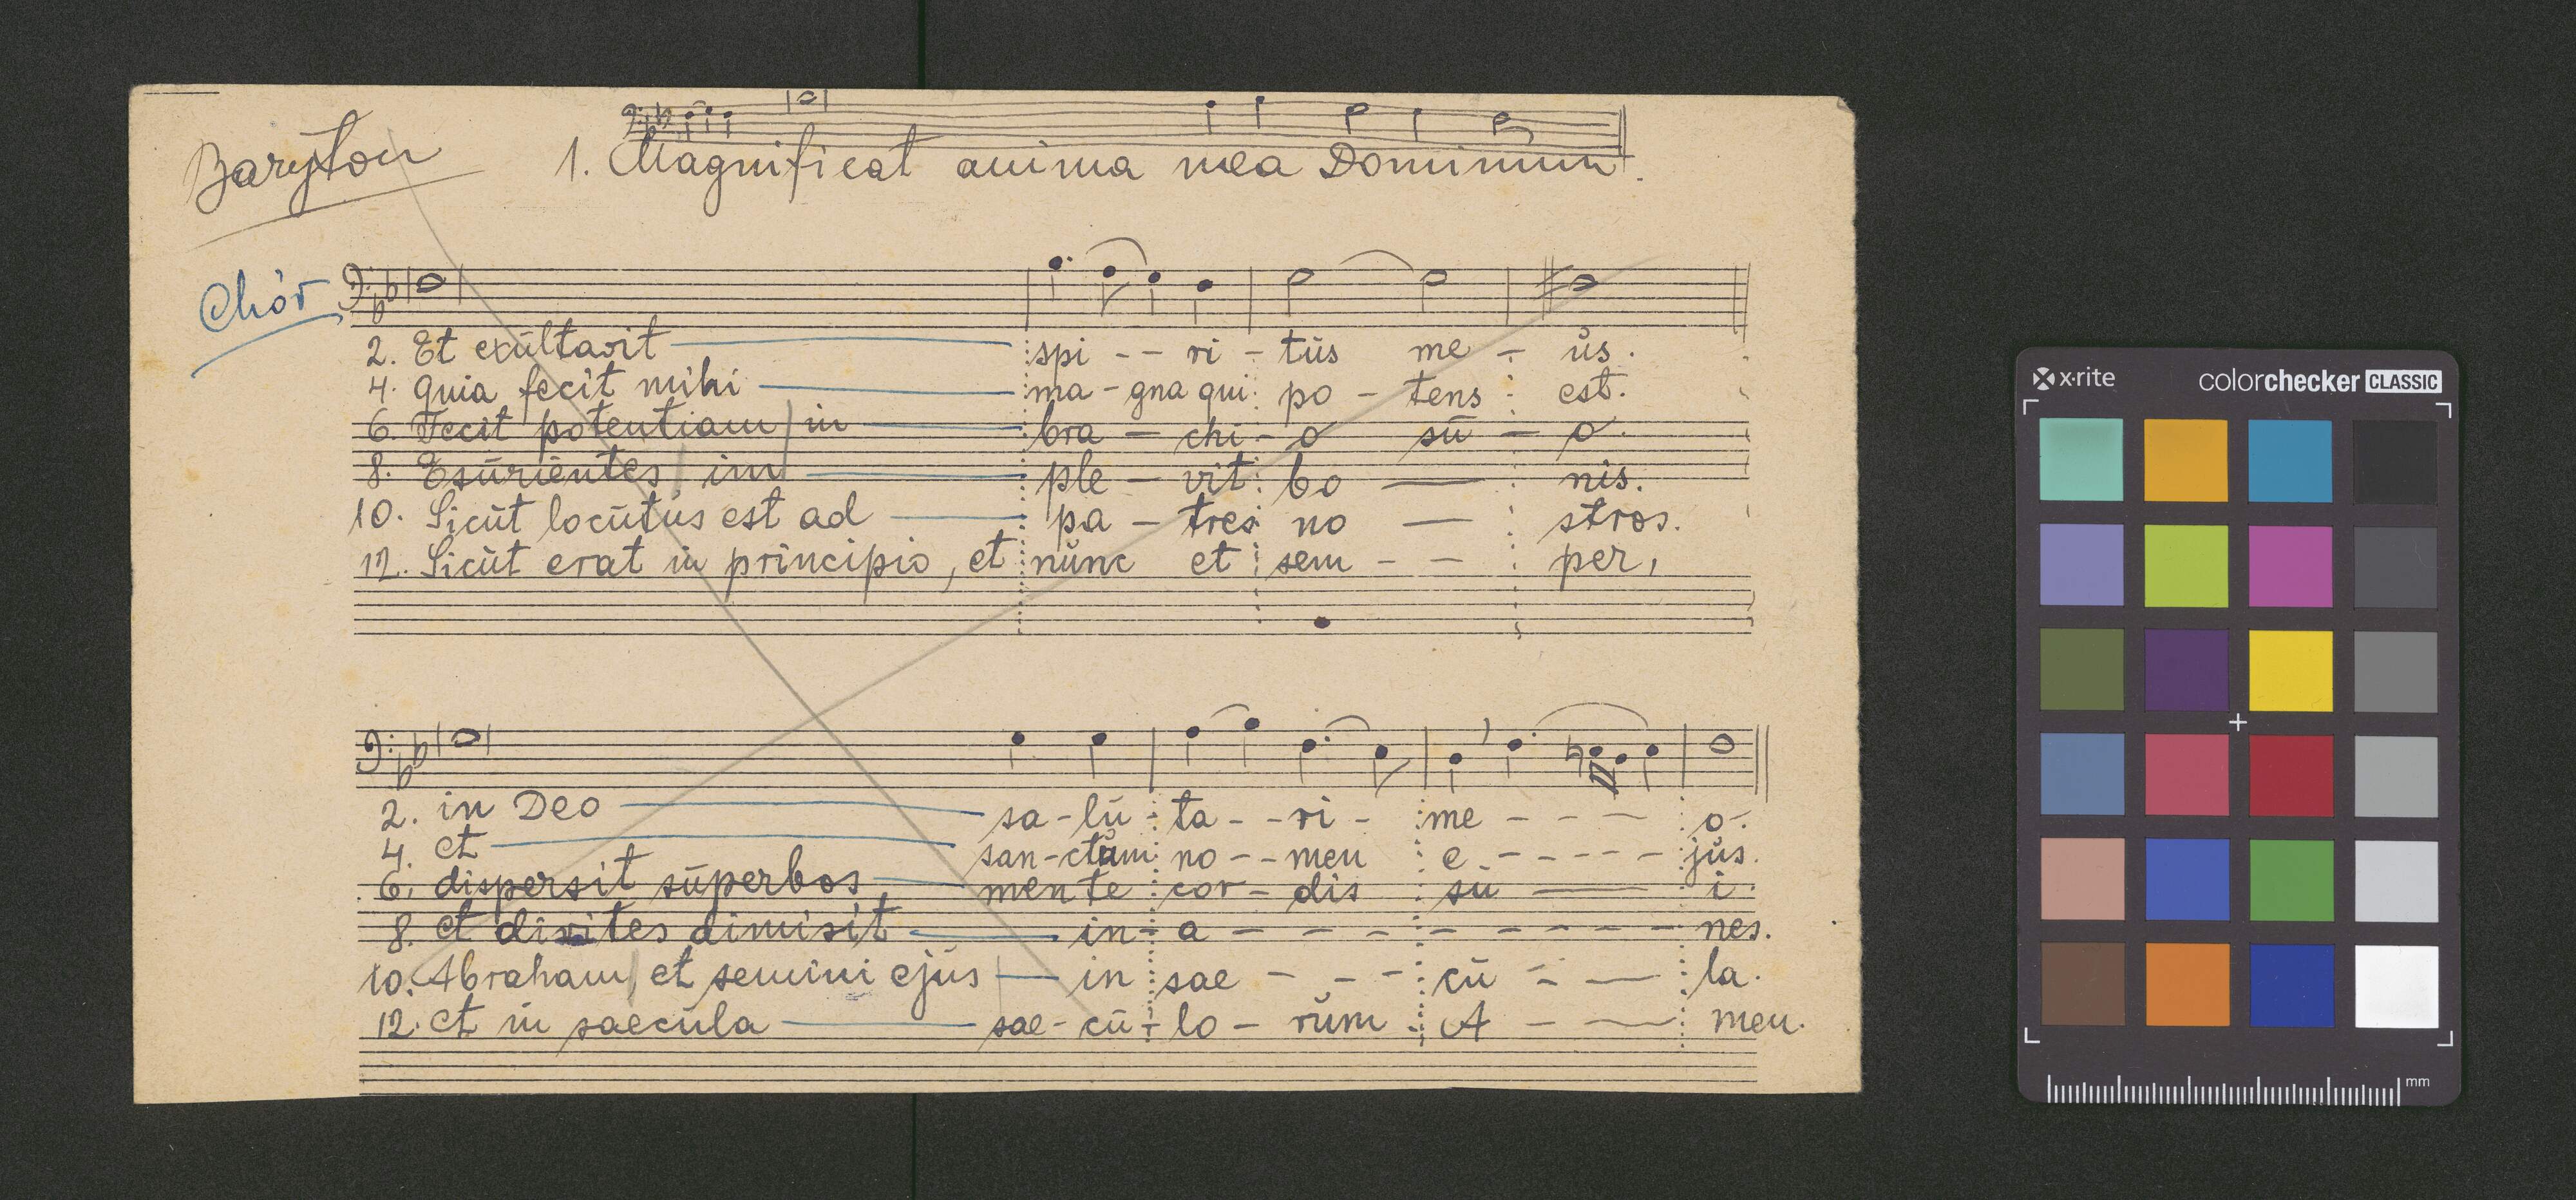 Baryton
1. Magnificat anima mea Dominum.
Chór
2. Et exūltavit spi - - ri - tūs me - ūs.
4. Quia fecit mihi ma - gna qui po - tens est.
6. Fecit potentiam in bra - chi - o sū - o.
8. Esūriėntes im ple - vit bo — nis.
10. Sicūt locūtūs est ad pa - tres no — stros.
12. Sicūt erat in principio, et nūnc et sem - - per,
2. in Deo sa - lū - ta - - ri - me - - - o.
4. et san - ctūm no - - men e - - - - - jūs.
6. dispersit sūperbos mente cor - dis sū — i.
8. et divites dimisit in - a - - - - - - - - nes.
10. Abraham et semini ejūs in sae - - - cū - — la.
12. et in saecūla sae - cū - lo - rūm A - — men.
x·rite
colorchecker CLASSIC
mm